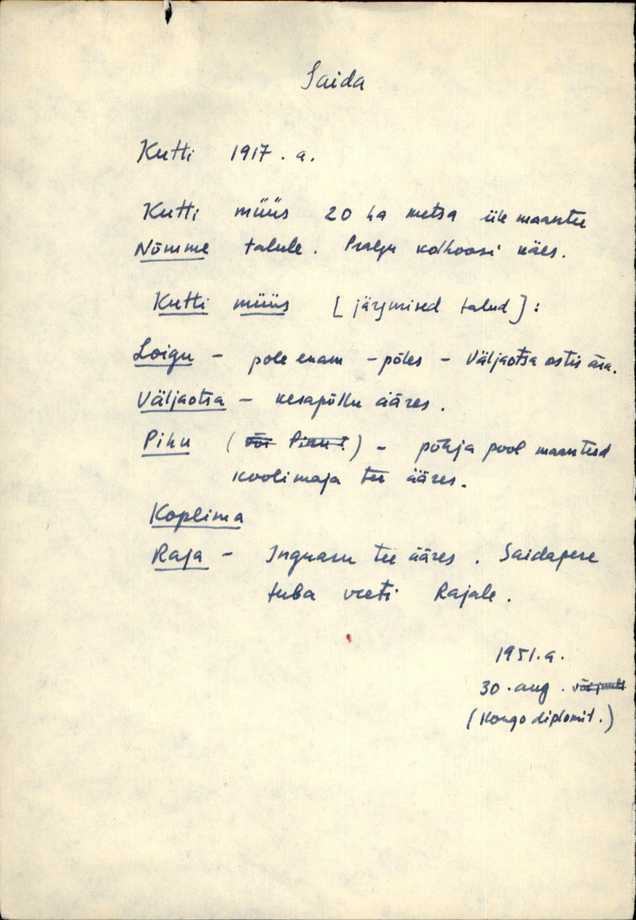 Saida
Kutti 1917. a.
Kutti müüs 20 ha metsa üle maantee
Nõmme talule. Praegu kolhoosi käes.
Kutti müüs [järgmised talud]:
Loigu – pole enam – põles – Väljaotsa ostis ära.
Väljaotsa – kesapõllu ääres.
Pihu ( ) – põhja pool maanteed
koolimaja tee ääres.
Koplima
Raja – Inguasu tee ääres. Saidapere
tuba veeti Rajale.
1951.a.
30. aug.
(Kongo diplomit.)